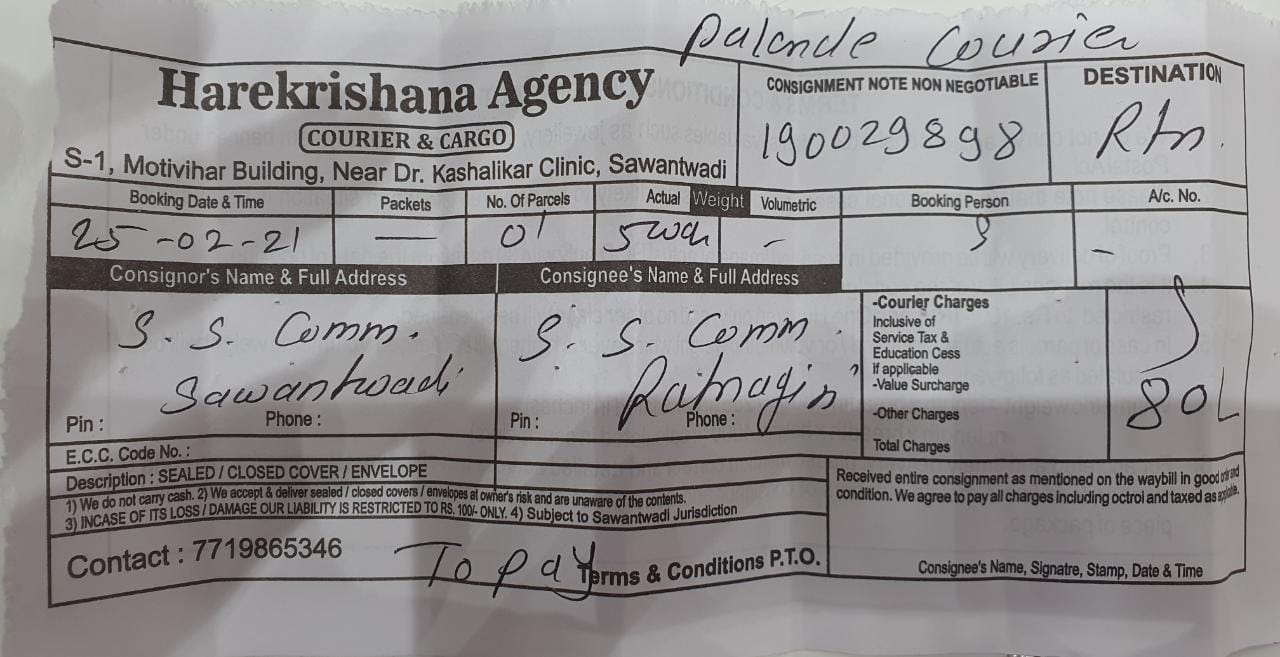 Palande Courier
Harekrishana Agency
COURIER & CARGO
S-1, Motivihar Building, Near Dr. Kashalikar Clinic, Sawantwadi
CONSIGNMENT NOTE NON NEGOTIABLE
190029898
DESTINATION
Rtn.
Booking Date & Time Packets No. Of Parcels Actual Weight Volumetric Booking Person A/c. No.
25-02-21 — 01 - -
Consignor's Name & Full Address Consignee's Name & Full Address
S. S. Comm.
Sawantwadi
Pin : Phone :
S. S. Comm.
Ratnagiri
Pin : Phone :
-Courier Charges
Inclusive of
Service Tax &
Education Cess
if applicable
-Value Surcharge
-Other Charges
Total Charges
80
E.C.C. Code No. :
Description : SEALED / CLOSED COVER / ENVELOPE
1) We do not carry cash. 2) We accept & deliver sealed / closed covers / envelopes at owner's risk and are unaware of the contents.
3) INCASE OF ITS LOSS / DAMAGE OUR LIABILITY IS RESTRICTED TO RS. 100/- ONLY. 4) Subject to Sawantwadi Jurisdiction
Contact : 7719865346
To pay
Terms & Conditions P.T.O.
Received entire consignment as mentioned on the waybill in good order and
condition. We agree to pay all charges including octroi and taxed as applicable.
Consignee's Name, Signatre, Stamp, Date & Time